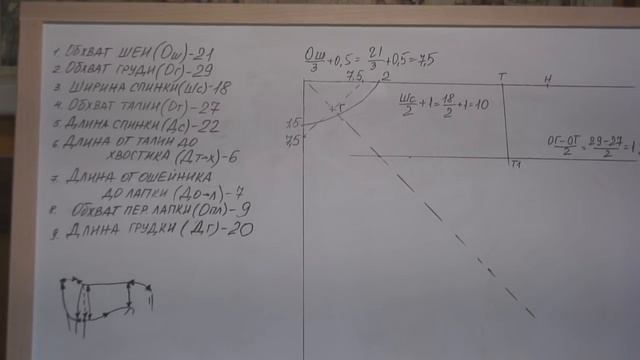 1. ОБХВАТ ШЕИ (Ош)-21
2. ОБХВАТ ГРУДИ (Ог)-29
3. ШИРИНА СПИНКИ (Шс)-18
4. ОБХВАТ ТАЛИИ (От)-27
5. ДЛИНА СПИНКИ (Дс)-22
6. ДЛИНА ОТ ТАЛИИ ДО
ХВОСТИКА (Дт→х)-6
7. ДЛИНА ОТ ОШЕЙНИКА
ДО ЛАПКИ (До→л)-7
8. ОБХВАТ ПЕР. ЛАПКИ (Опл)-9
9. ДЛИНА ГРУДКИ (Дг)-20
Ош/3+0,5=21/3+0,5=7,5
7,5 2 Т Н
Шс/2+1=18/2+1=10
1,5
7,5
Т1
ОГ-ОТ/2=29-27/2=1